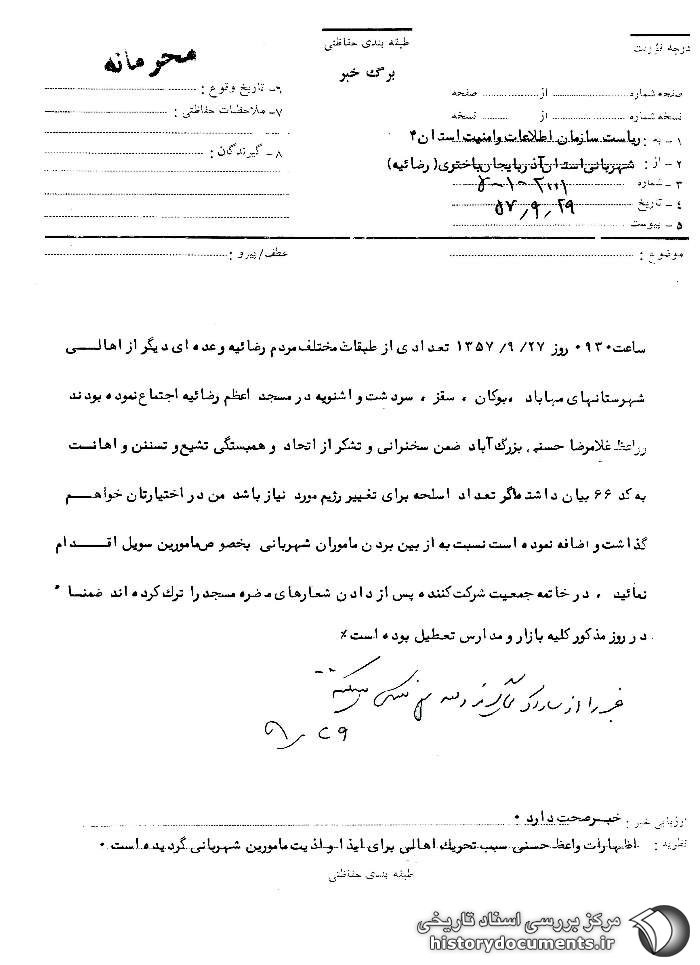 درجه فوریت
طبقه بندی حفاظتی
محرمانه
برگ خبر
صفحه شماره از صفحه
نسخه شماره از نسخه
۱ - به : ریاست سازمان اطلاعات و امنیت استان ۴
۲ - از : شهربانی استان آذربایجان باختری ( رضائیه )
۳ - شماره
۴ - تاریخ ۵۷٫۹٫۲۹
۵ - پیوست
۶ - تاریخ وقوع :
۷ - ملاحظات حفاظتی :
۸ - گیرندگان :
موضوع :
عطف / پیرو :
ساعت ۰۹۳۰ روز ۲۷ /۹ /۱۳۵۷ تعدادی از طبقات مختلف مردم رضائیه و عده ای دیگر از اهالی
شهرستانهای مهاباد ، بوکان ، سقز ، سردشت و اشنویه در مسجد اعظم رضائیه اجتماع نموده بودند
واعظ غلامرضا حسنی بزرگ آباد ضمن سخنرانی و تشکر از اتحاد و همبستگی تشیع و تسنن و اهانت
به کد ۶۶ بیان داشته اگر تعداد اسلحه برای تغییر رژیم مورد نیاز باشد من در اختیارتان خواهم
گذاشت و اضافه نموده است نسبت به از بین بردن ماموران شهربانی بخصوص مامورین سویل اقدام
نمائید ، در خاتمه جمعیت شرکت کننده پس از دادن شعارهای مضره مسجد را ترک کرده اند ضمنا "
در روز مذکور کلیه بازار و مدارس تعطیل بوده است ٪
خبر را از
۹٫۲۹
ارزیابی خبر : خبر صحت دارد ۰
نظریه : اظهارات واعظ حسنی سبب تحریک اهالی برای ایذا و اذیت مامورین شهربانی گردیده است ۰
طبقه بندی حفاظتی
مرکز بررسی اسناد تاریخی
historydocuments.ir